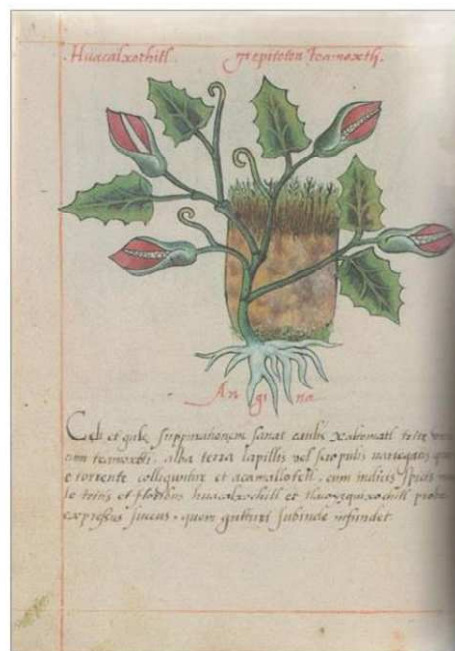 Huacalxochitl. tepitoton teamoxtli.
Angina
et gulę suppurationem sanat caulis Xaltomatl tritę
cum teamoxtli, alba terra lapillis vel scrupulis
e torrente colliguntur et acamallotetl, cum indicis spicis
lo tritis et floribus huacalxochitl et tlacoyzquixochitl
expressus succus, quem gutturi subinde infundet.